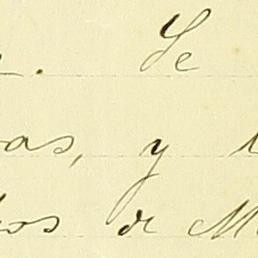 . Se
as, y
os de M